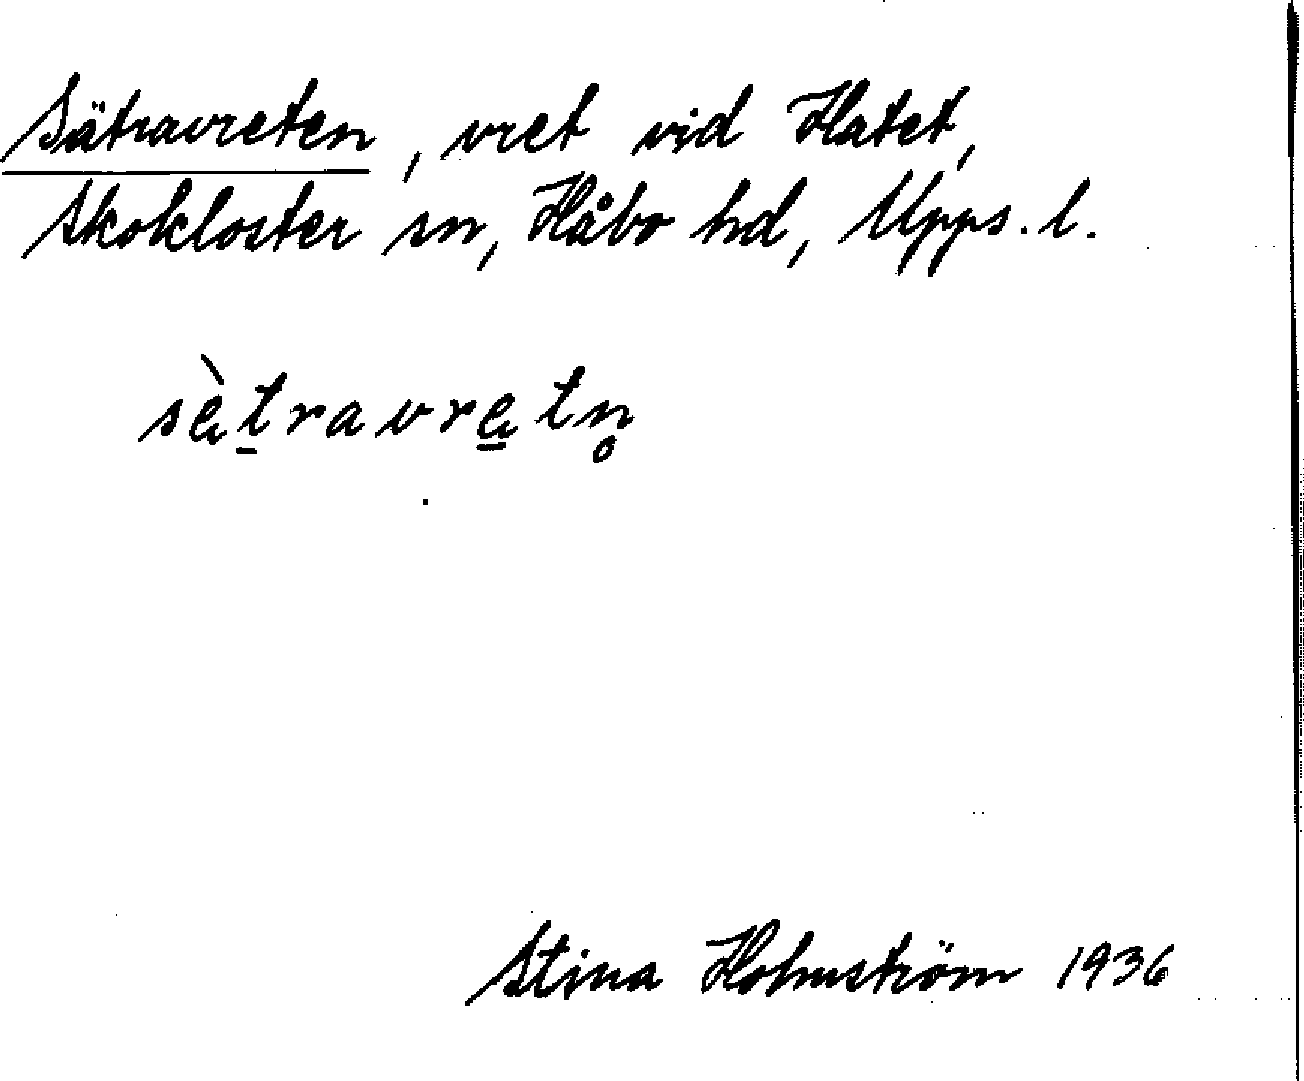 Sätravreten, vret vid Hatet,
Skokloster sn, Håbo hd, Upps. l.
sὲt̠ravrɛ̲tn̥
Stina Holmström 1936